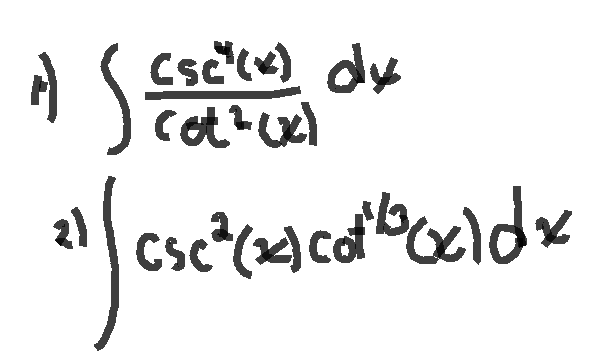 1) ∫ csc⁴(x) / cot²(x) dx
2) ∫ csc²(x) cot^{1/3}(x) dx